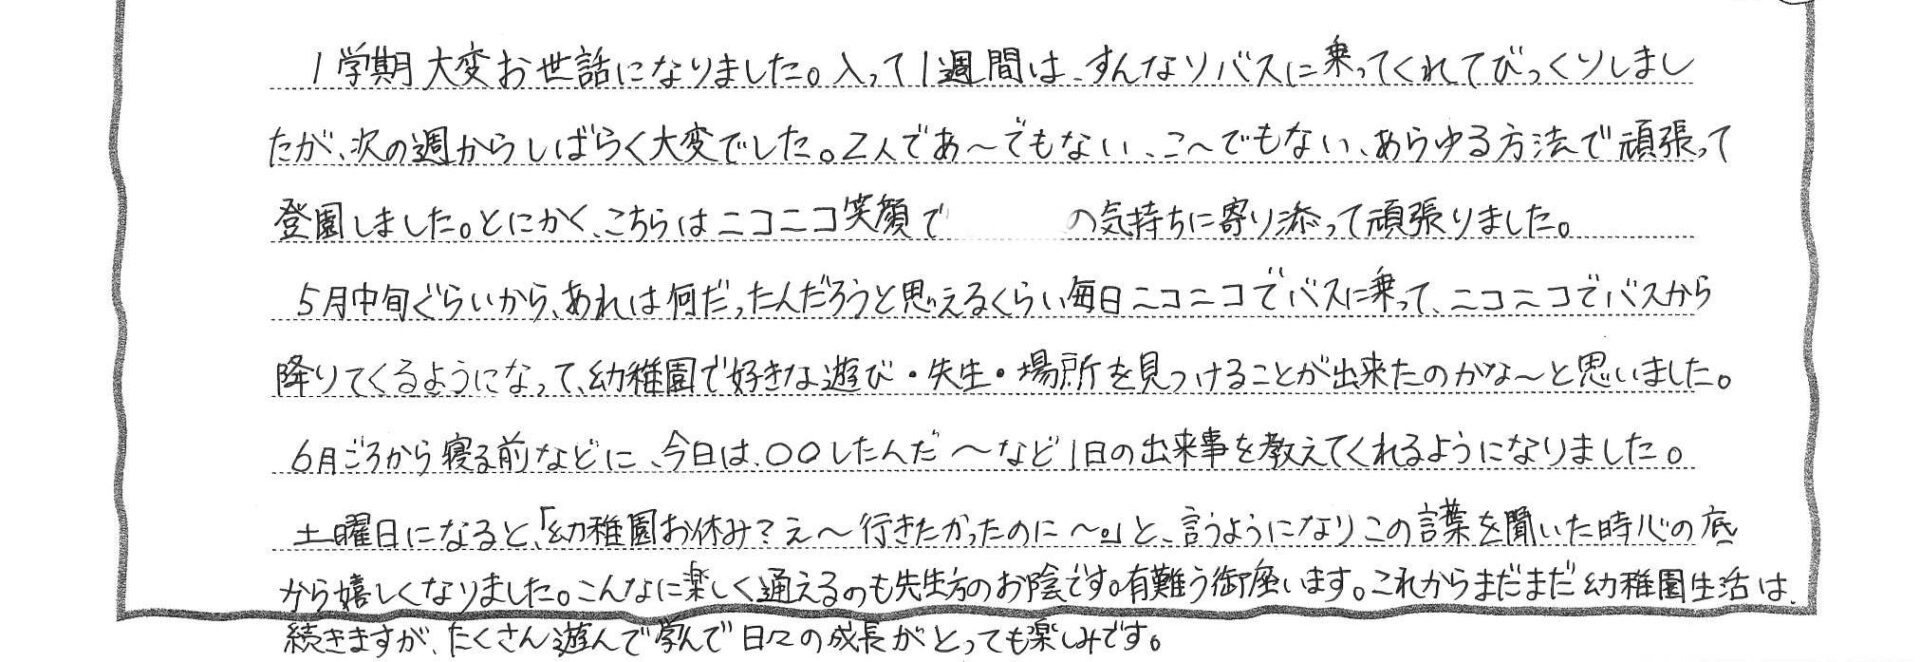 1学期大変お世話になりました。入って1週間は、すんなりバスに乗ってくれてびっくりしまし
たが、次の週からしばらく大変でした。2人であ〜でもない、こ〜でもない、あらゆる方法で頑張って
登園しました。とにかく、こちらはニコニコ笑顔で の気持ちに寄り添って頑張りました。
5月中旬ぐらいから、あれは何だったんだろうと思えるくらい毎日ニコニコでバスに乗って、ニコニコでバスから
降りてくるようになって、幼稚園で好きな遊び・先生・場所を見つけることが出来たのかな〜と思いました。
6月ごろから寝る前などに、今日は、〇〇したんだ〜など1日の出来事を教えてくれるようになりました。
土曜日になると、「幼稚園お休み?え〜行きたかったのに〜。」と、言うようになりこの言葉を聞いた時心の底
から嬉しくなりました。こんなに楽しく通えるのも先生方のお陰です。有難う御座います。これからまだまだ幼稚園生活は、
続きますが、たくさん遊んで学んで日々の成長がとっても楽しみです。